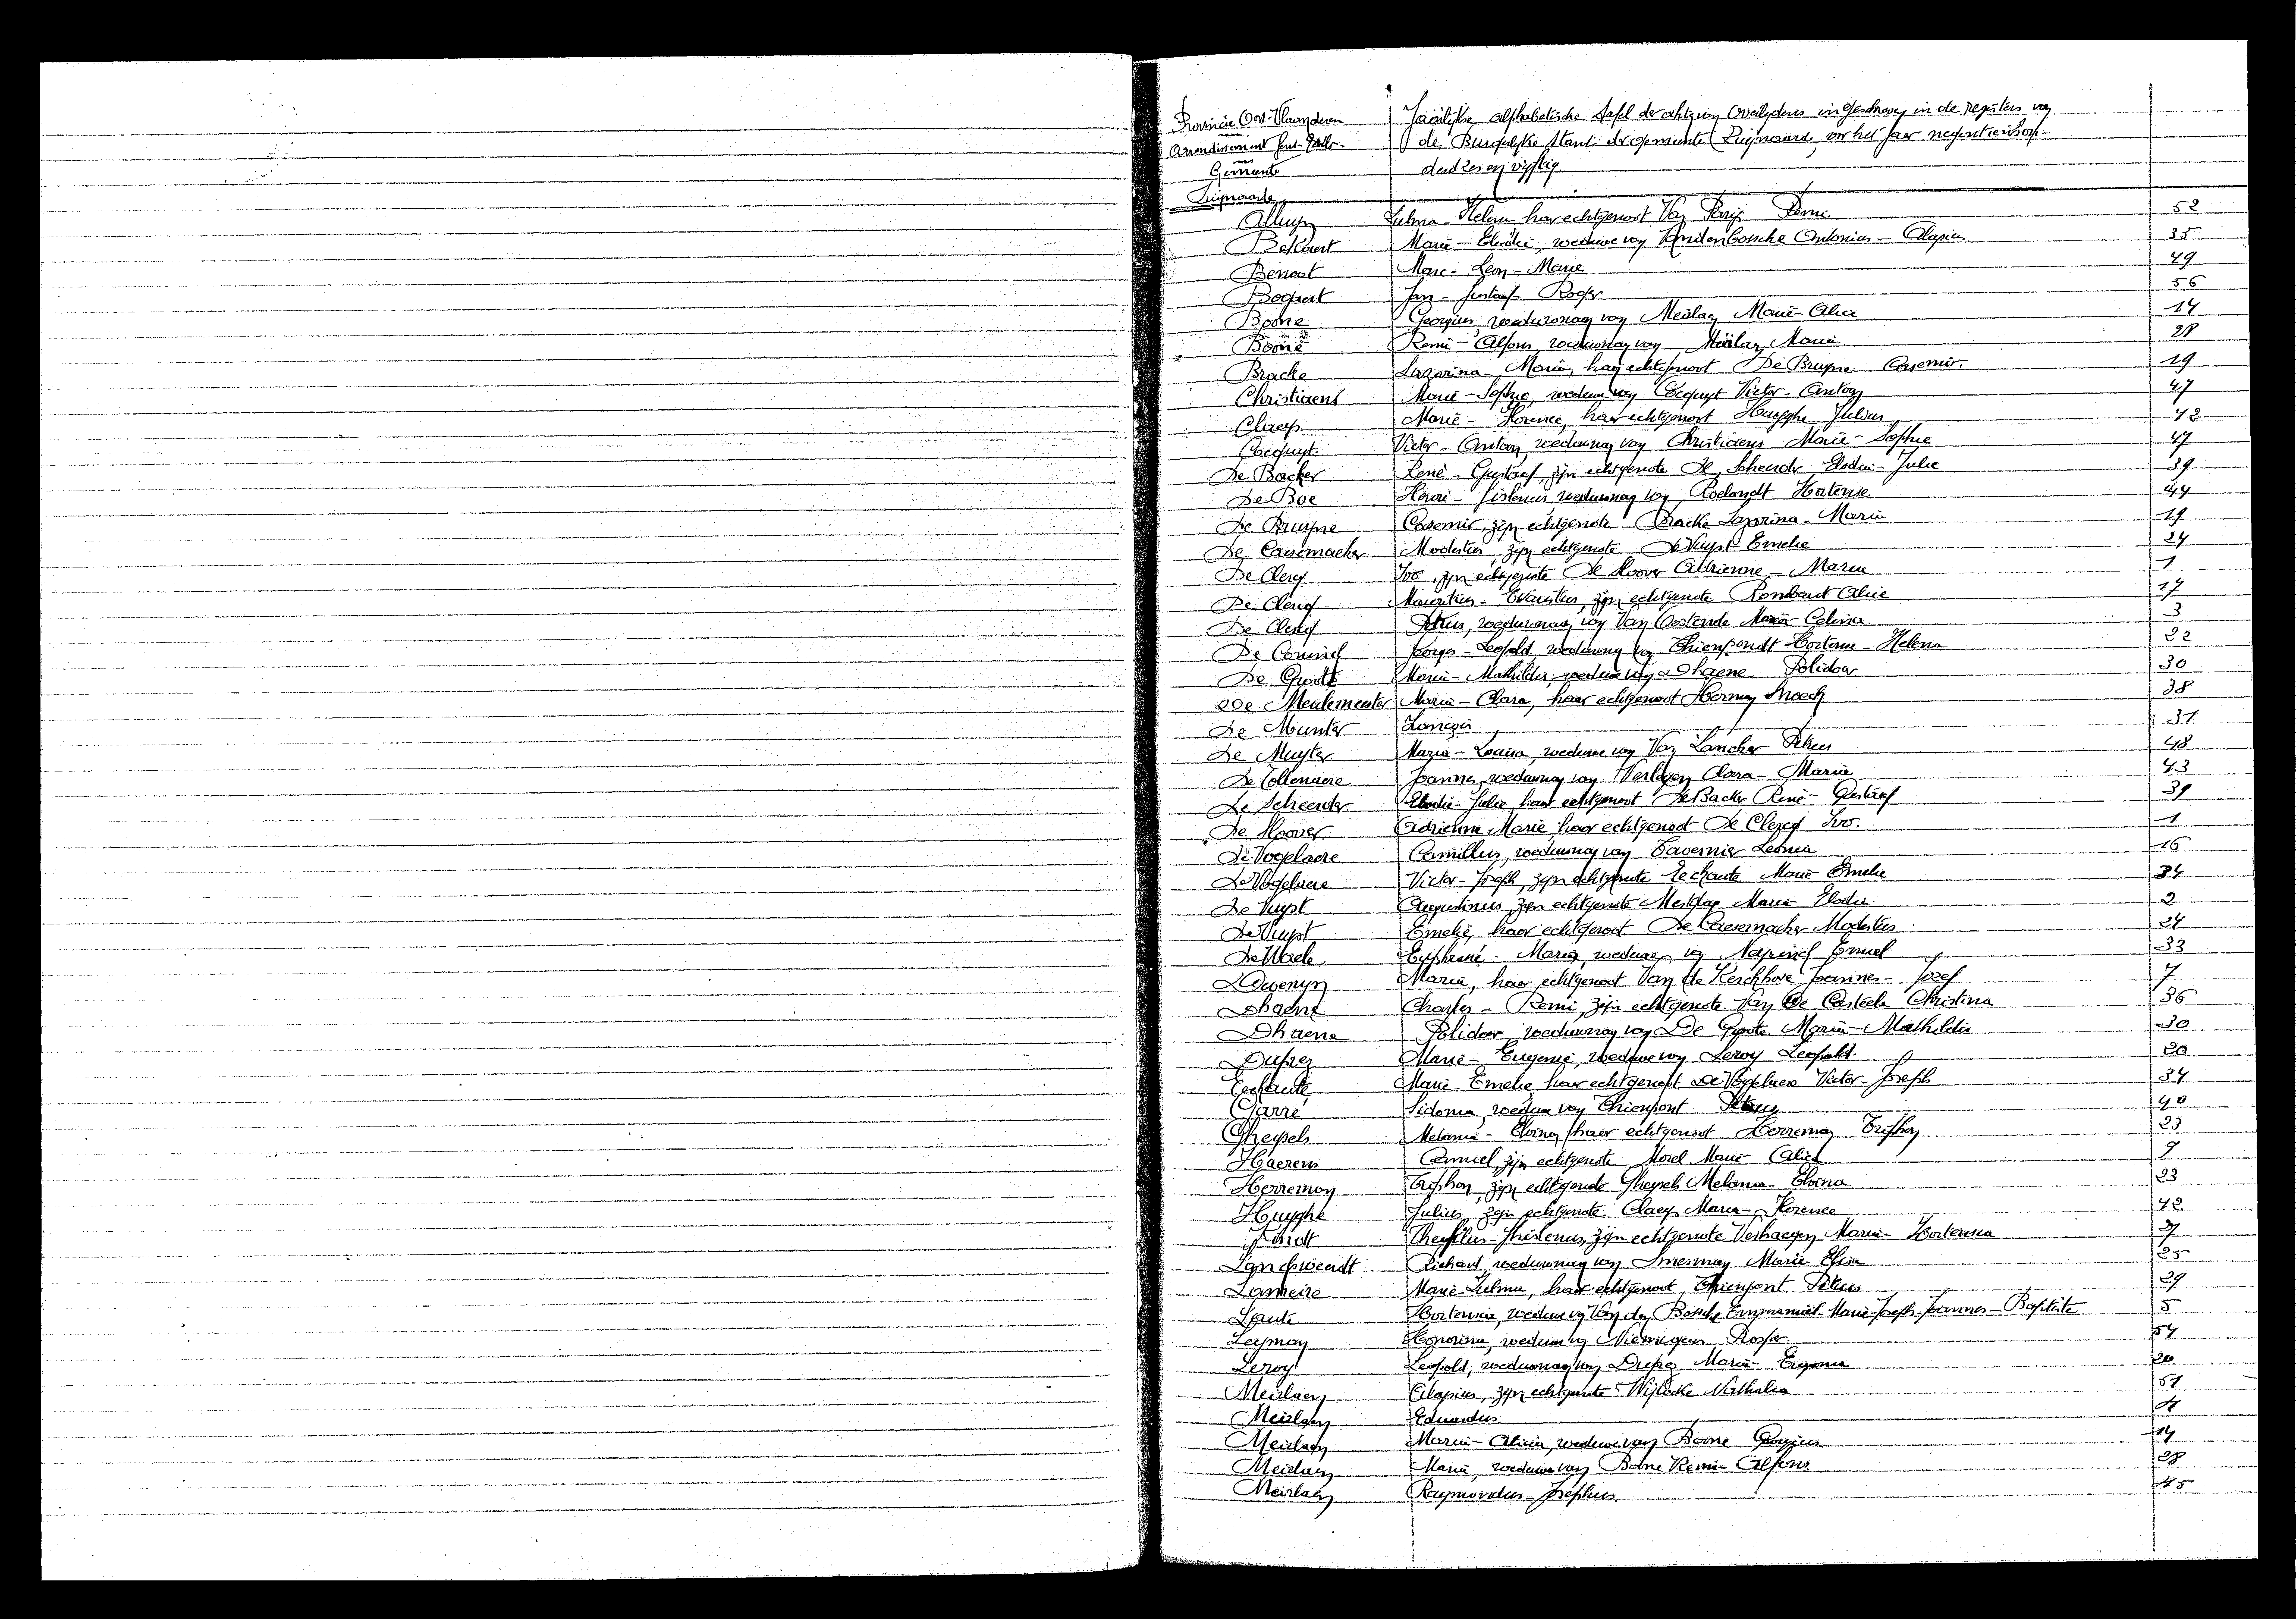 Provincie Oost-Vlaanderen
Arrondissement Gent-Eeklo.
Gemeente
Zwijnaarde
Jaarlijkse alfabetische tafel der akten van Overlijdens ingeschreven in de registers van
de Burgerlijke Stand der gemeente Zwijnaarde, voor het jaar negentienhon-
derd zes en vijftig
Zulma - Helena haar echtgenoot Van Remi 52
Marie - Elodie, weduwe van Vandenbossche Antonius - Alapius 35
Benoot Marc - Leon - Marie 49
Bogaert Jan - Gustaaf - Roger 56
Boone Georgius, weduwnaar van Meirlaen Marie - Alice 14
Boone Remi - Alfons, weduwnaar van Meirlaen Maria 28
Bracke Lazarina - Maria, haar echtgenoot De Bruyne Casemir. 19
Christiaens Marie - Sophie, weduwe van Cocquyt Victor - Anton 47
Claeys Marie - Florence, haar echtgenoot Huyghe Julius 42
Cocquyt Victor - Anton, weduwnaar van Christiaens Marie - Sophie 47
De Backer René - Gustaaf, zijn echtgenote De Scheerder Elodie - Julie 39
De Boe Henri - Gislenus, weduwnaar van Roelandt Hortense 44
De Bruyne Casemir, zijn echtgenote Bracke Lazarina - Maria 19
De Causemacker Modestus, zijn echtgenote De Vuyst Emelie 24
De Clercq Ivo, zijn echtgenote De Moover Adrienne - Maria 1
De Clercq Mauritius - Evaristus, zijn echtgenote Rombaut Alice 17
De Clercq Petrus, weduwnaar van Van Oostende Maria - Celina 3
De Coninck Georges - Leopold, weduwnaar van Thienpondt Hortense - Helena 22
De Groote Maria - Mathildis, weduwe van Dhaene Polidoor 30
De Meulemeester Maria - Clara, haar echtgenoot Herman Snoeck 38
De Munter 31
De Muyter Maria - Louisa, weduwe van Van Lancker Petrus 48
De Tollenaere Joannes, weduwnaar van Verleyen Clara - Maria 43
De Scheerder Elodie - Julie, haar echtgenoot De Backer René - Gustaaf 39
De Moover Adrienne - Marie haar echtgenoot De Clercq Ivo. 1
De Vogelaere Camillus, weduwnaar van Tavernier Leonia 16
De Vogelaere Victor - Joseph, zijn echtgenote Marie - Emelie 34
De Vuyst Augustinus, zijn echtgenote Mestdag Marie - Elodie 2
De Vuyst Emelie, haar echtgenoot De Causemacker Modestus 24
De Waele Euphrasie - Maria, weduwe van Emiel 33
Maria, haar echtgenoot Van de Kerckhove Joannes - Jozef 7
Dhaene Charles - Remi, zijn echtgenote Van De Casteele Christina 36
Dhaene Polidoor, weduwnaar van De Groote Maria - Mathildis 30
Duprez Marie - Eugenie, weduwe van Leroy Leopold. 20
Marie - Emelie haar echtgenoot De Vogelaere Victor - Joseph 34
Garré Sidonia, weduwe van Thienpont Petrus 40
Gheysels Melania - Elvina, haar echtgenoot Herreman Trephon 23
Haerens Camiel, zijn echtgenote Morel Marie - Alice 9
Herreman Trephon, zijn echtgenote Gheysels Melania - Elvina 23
Huyghe Julius, zijn echtgenote Claeys Maria - Florence 42
Theofilus - Gislenus, zijn echtgenote Verhaegen Maria - Hortensia
Langhweerdt Richard, weduwnaar van Marie - Elisa 25
Lameire Marie - Zulma, haar echtgenoot Thienpont Petrus 29
Laute Hortensia, weduwe van Van den Bossche Emmanuel - Marie - Joseph - Joannes - Baptiste 5
Leyman Honorina, weduwe van Roger 54
Leroy Leopold, weduwnaar van Duprez Maria - Eugenia 20
Meirlaen Alapius, zijn echtgenote Wijlacke Nathalia 51
Meirlaen Eduardus
Meirlaen Maria - Alicia, weduwe van Boone Georgius 14
Meirlaen Maria, weduwe van Boone Remi - Alfons 28
Meirlaen Raymondus - Josephus 45